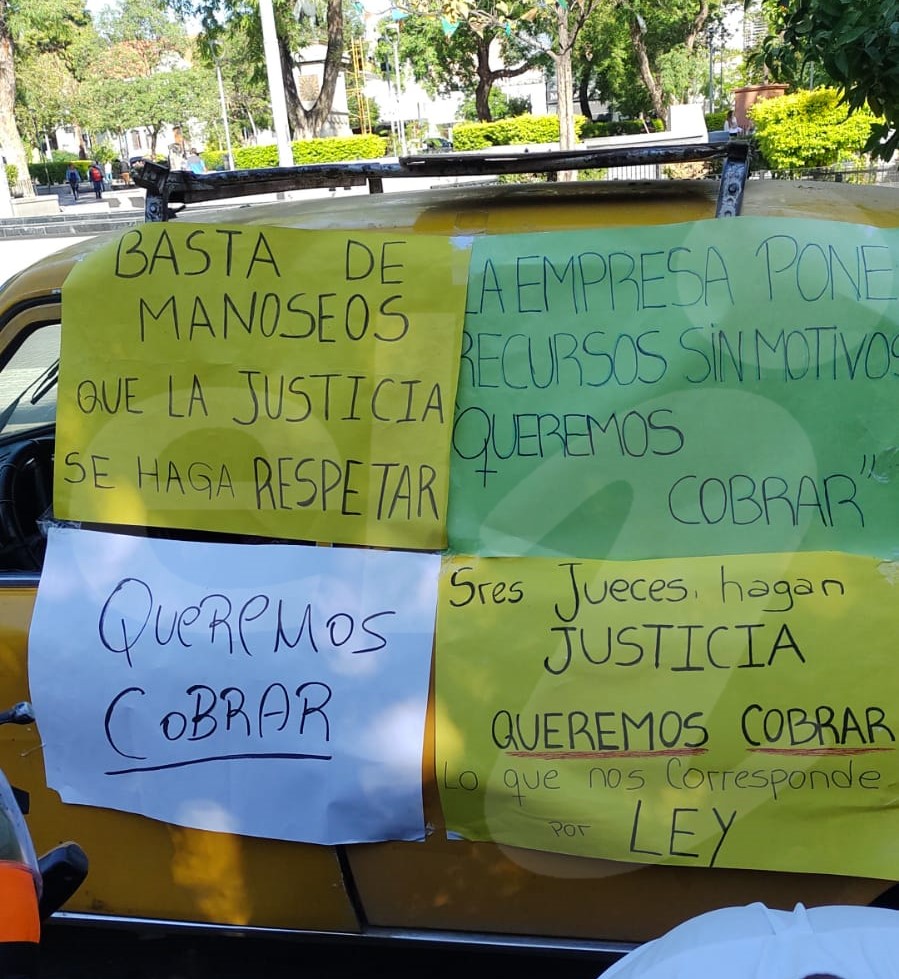 BASTA DE
MANOSEOS
QUE LA JUSTICIA
SE HAGA RESPETAR
LA EMPRESA PONE
RECURSOS SIN MOTIVOS
"QUEREMOS
COBRAR"
QUEREMOS
COBRAR
Sres Jueces, hagan
JUSTICIA
QUEREMOS COBRAR
Lo que nos Corresponde
por LEY